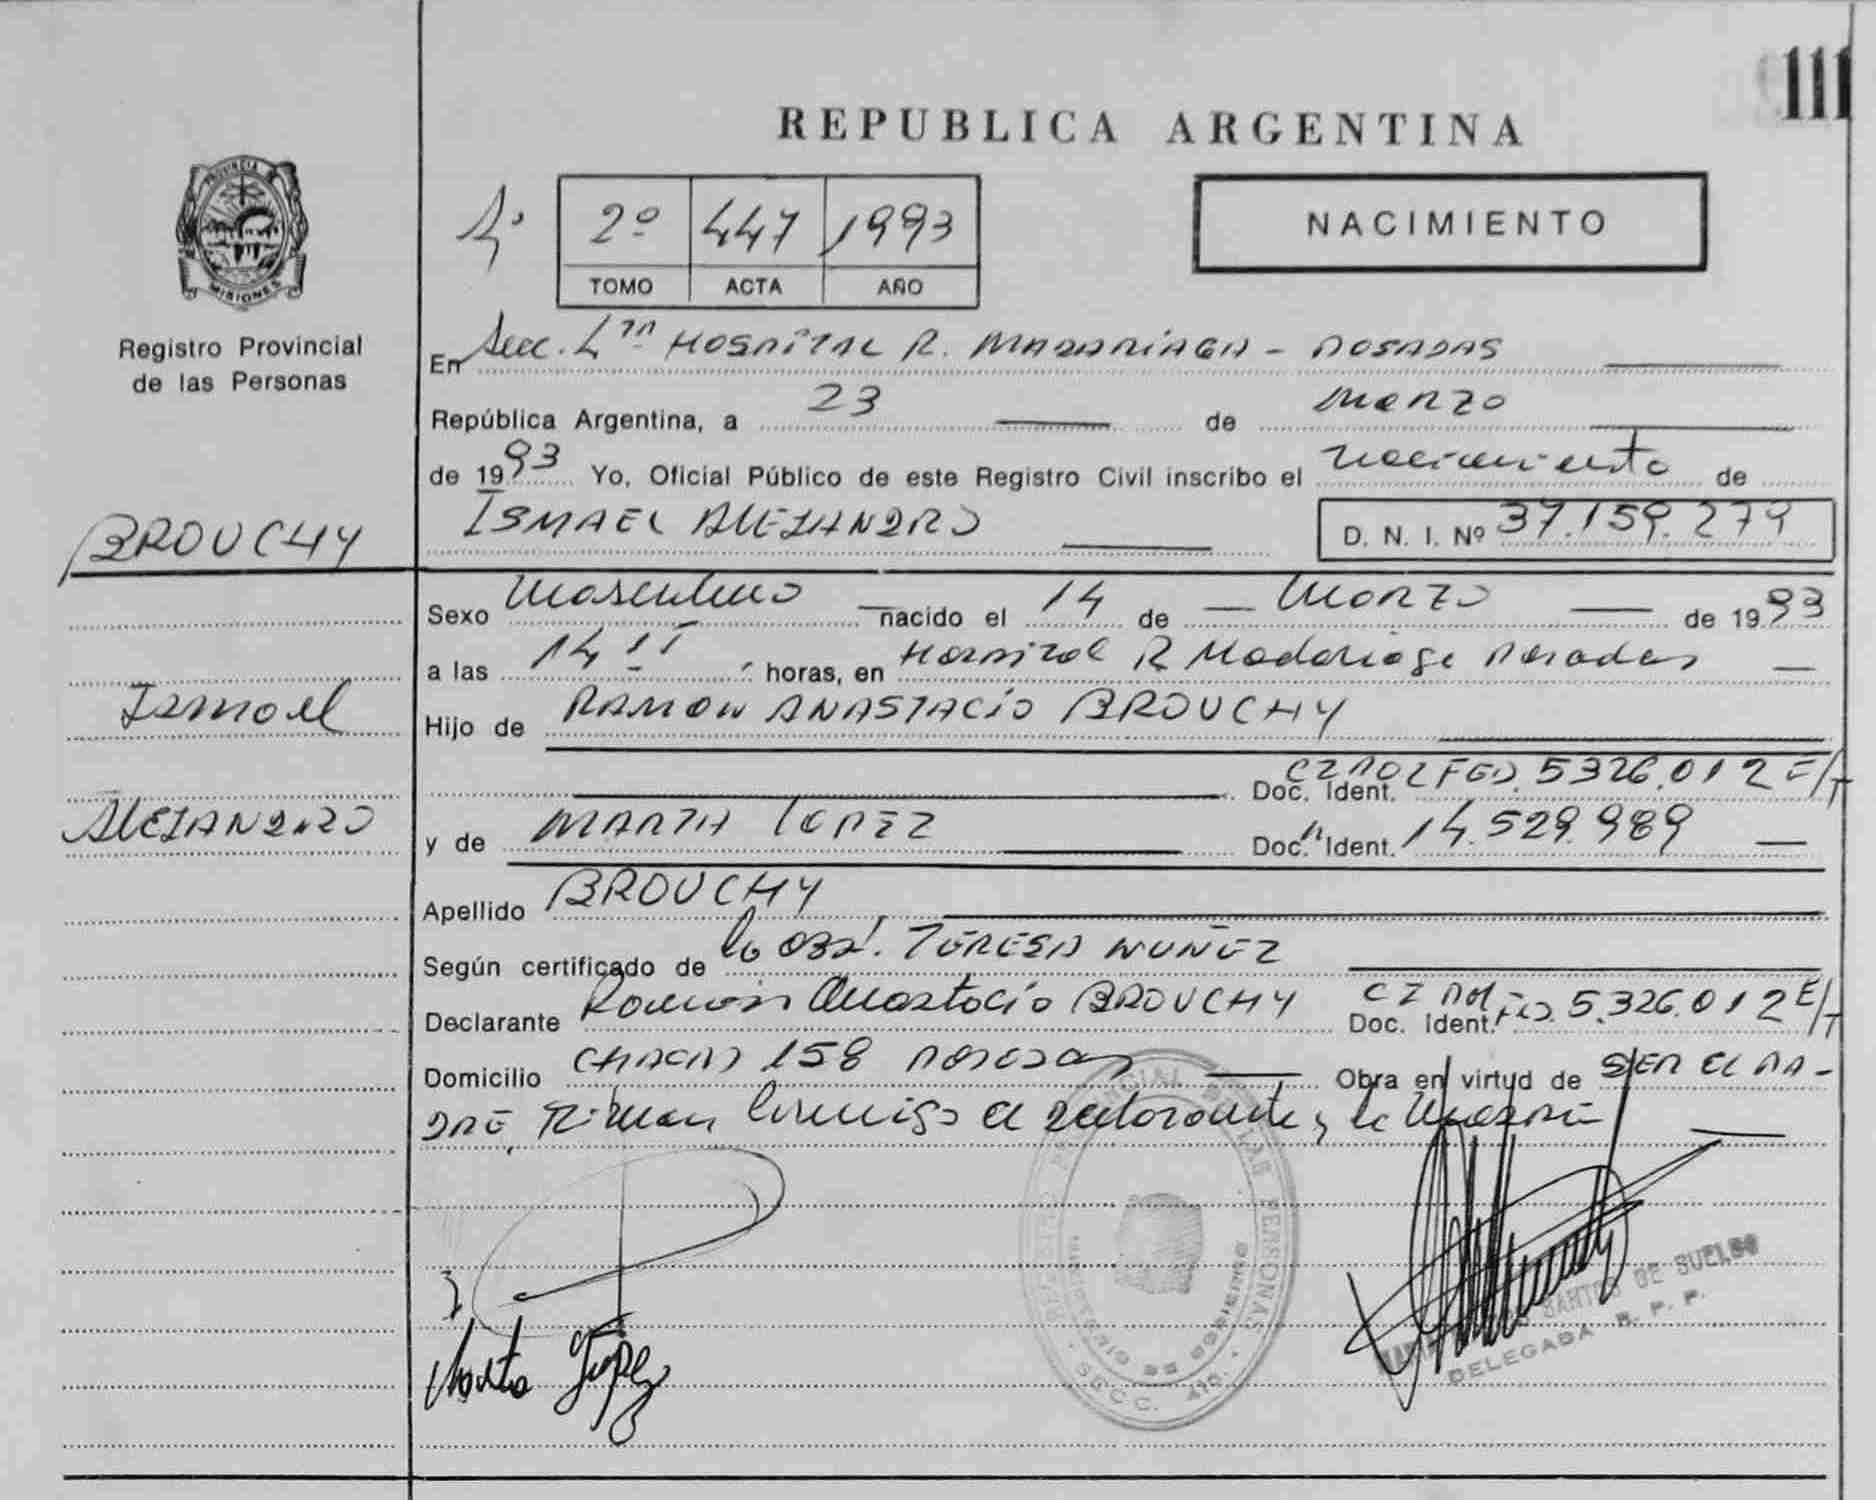 111
REPUBLICA ARGENTINA
PROVINCIA DE
MISIONES
Registro Provincial
de las Personas
4ª
2º 447 1993
TOMO ACTA AÑO
NACIMIENTO
En Secc. 4ta HOSPITAL R. MADARIAGA - POSADAS
República Argentina, a 23 de Marzo
de 1993 Yo, Oficial Público de este Registro Civil inscribo el nacimiento de
BROUCHY
ISMAEL ALEJANDRO D. N. I. Nº 37.159.279
Sexo Masculino nacido el 14 de Marzo de 1993
a las 14 horas, en Hospital R Madariaga Posadas
Ismael
Hijo de RAMON ANASTACIO BROUCHY
Doc. Ident. 5326.012 E/T
ALEJANDRO
y de MARTA LOPEZ Doc. Ident. 14.529.989
Apellido BROUCHY
Según certificado de la Obst. TERESA NUÑEZ
Declarante Ramón Anastacio BROUCHY Doc. Ident. 5.326.012 E/T
Domicilio CHACRA 158 POSADAS Obra en virtud de SER EL PA-
DRE, Firman Conmigo el declarante y la
Marta Lopez
DE LAS PERSONAS
SECC. 4ta.
SANTOS DE SUELDO
DELEGADA R. P. P.